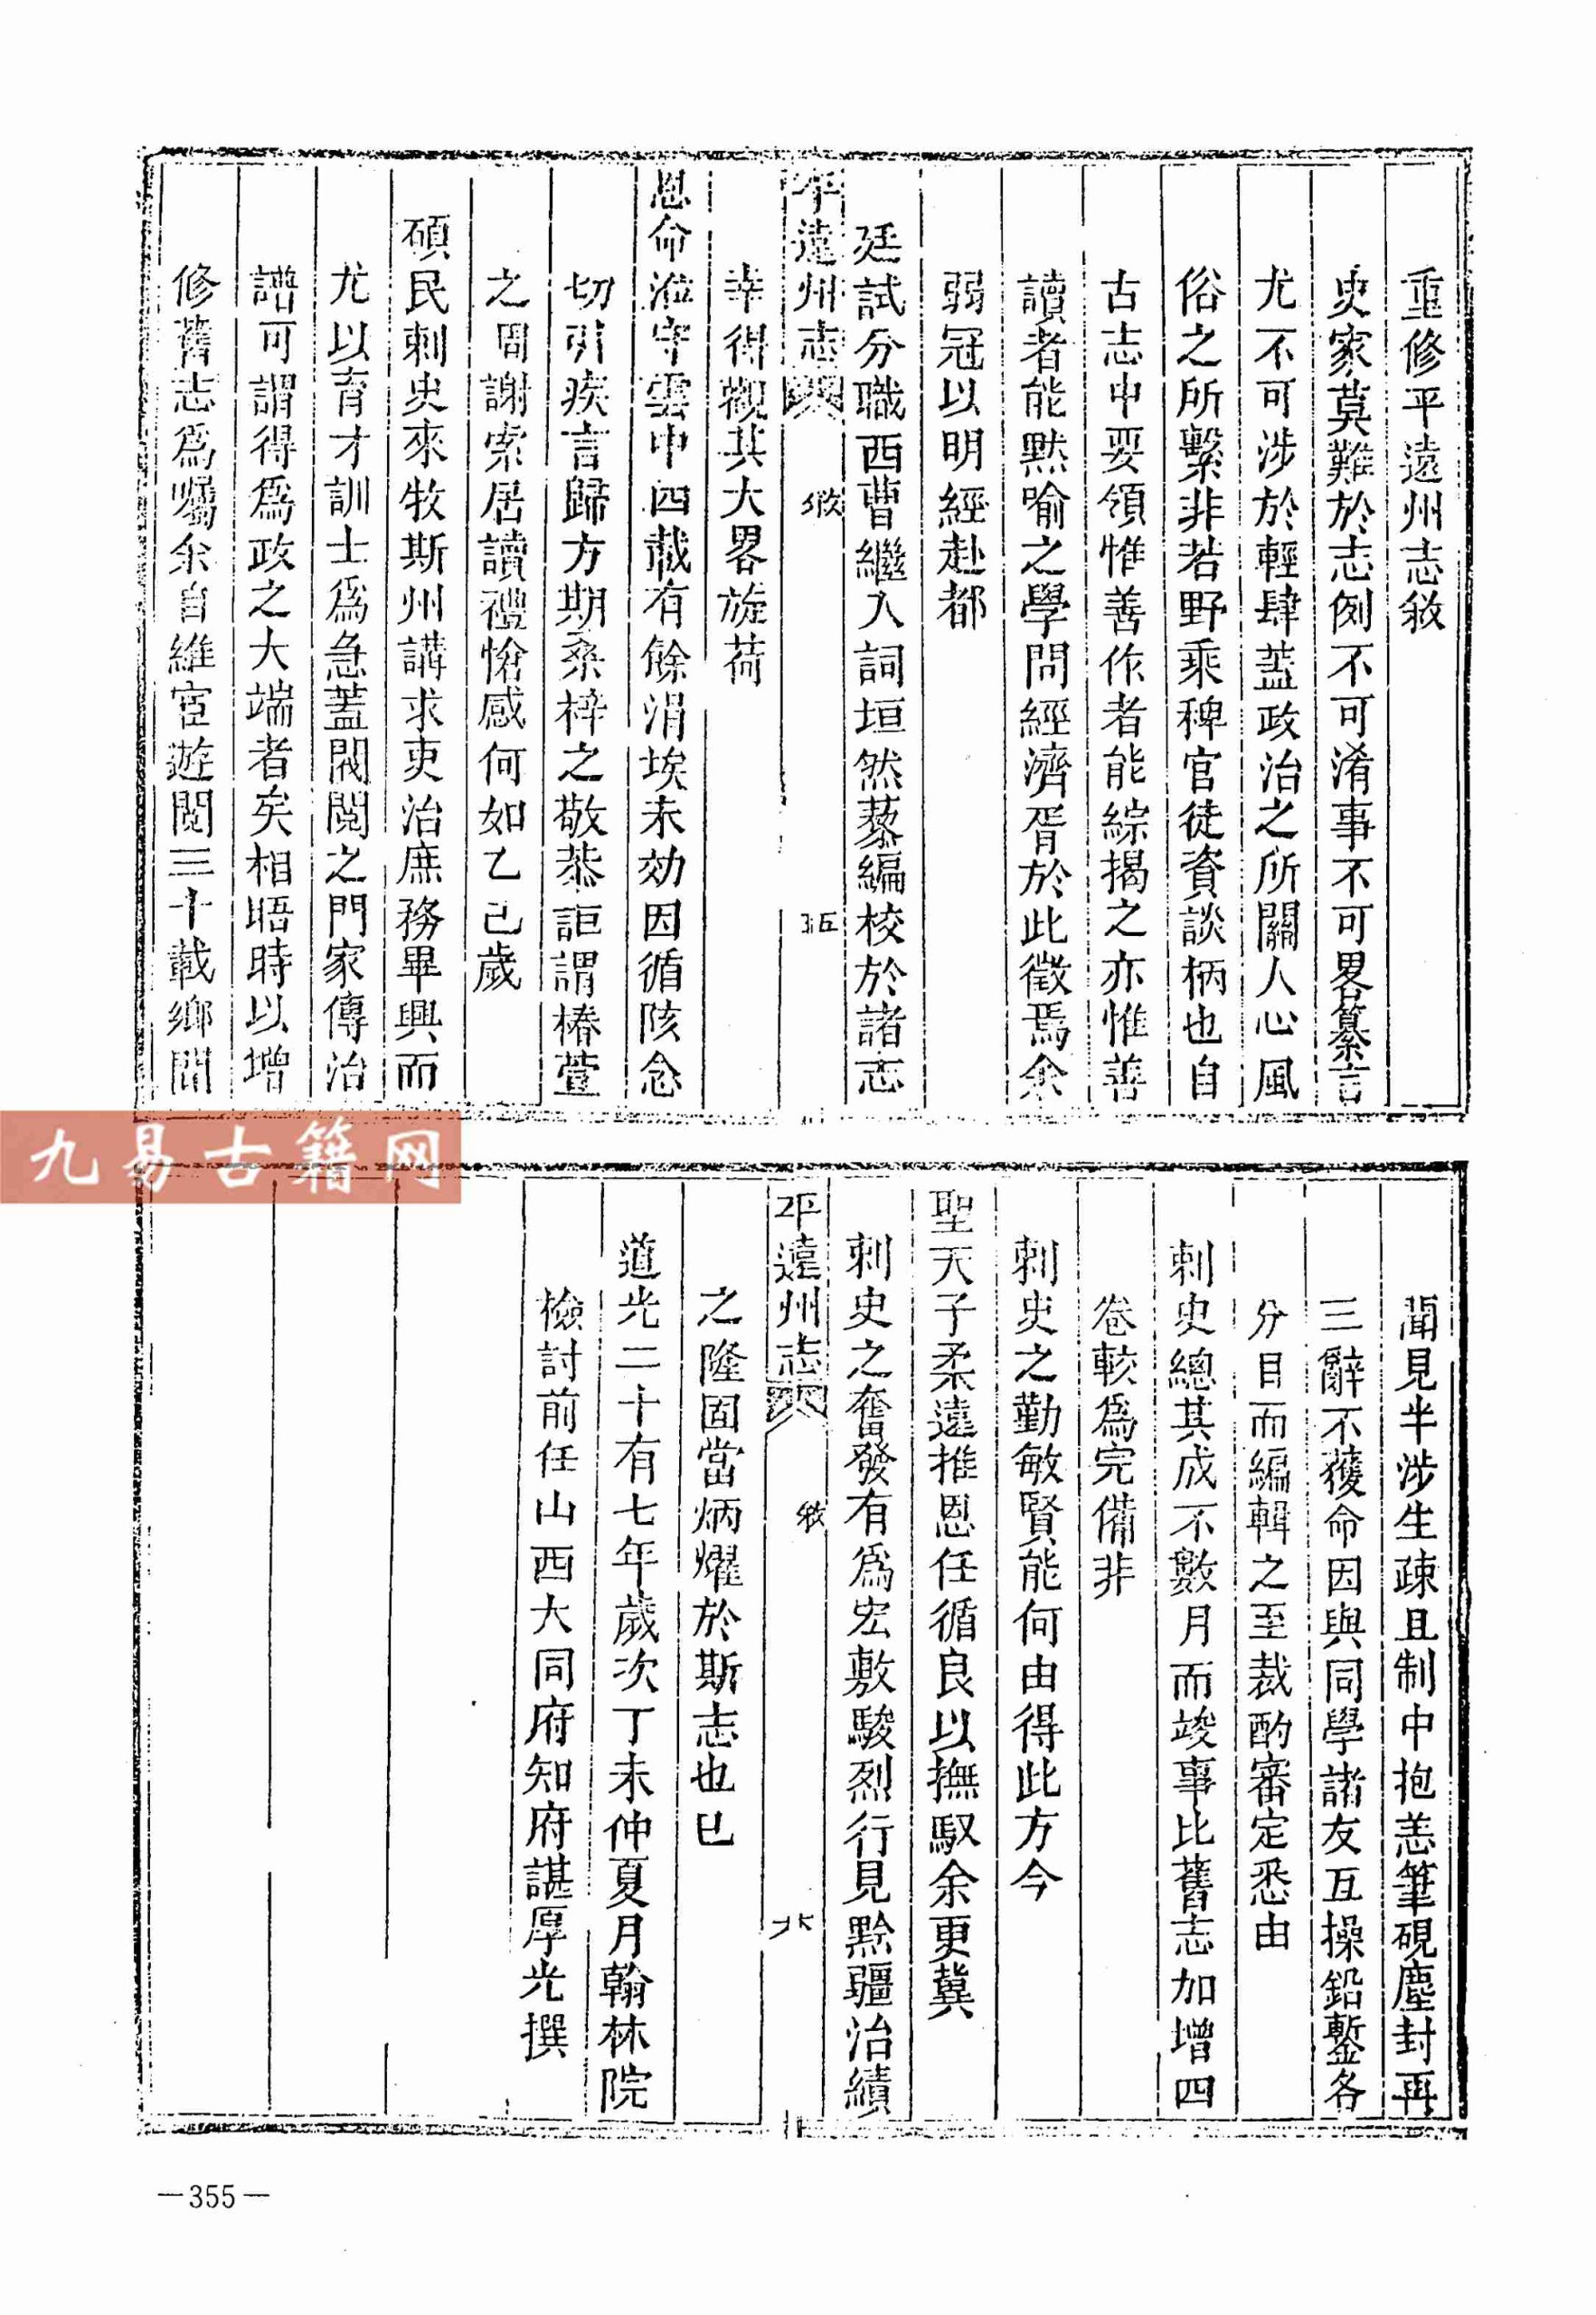 重修平遠州志敘
史家莫難於志例不可淆事不可畧纂言
尤不可涉於輕肆蓋政治之所關人心風
俗之所繫非若野乘稗官徒資談柄也自
古志中要領惟善作者能綜揭之亦惟善
讀者能默喻之學問經濟胥於此徵焉余
弱冠以明經赴都
廷試分職西曹繼入詞垣然藜編校於諸志
平遠州志 敘 五
幸得觀其大畧旋荷
恩命涖守雲中四載有餘涓埃未効因循陔念
切引疾言歸方期桑梓之敬恭詎謂椿萱
之凋謝索居讀禮愴感何如乙巳歲
碩民刺史來牧斯州講求吏治庶務畢興而
尤以育才訓士為急蓋閥閱之門家傳治
譜可謂得為政之大端者矣相晤時以增
修舊志為囑余自維宦遊閱三十載鄉間
聞見半涉生疎且制中抱恙筆硯塵封再
三辭不獲命因與同學諸友互操鉛鏨各
分目而編輯之至裁酌審定悉由
刺史總其成不數月而竣事比舊志加增四
卷較為完備非
刺史之勤敏賢能何由得此方今
聖天子柔遠推恩任循良以撫馭余更冀
刺史之奮發有為宏敷駿烈行見黔疆治績
平遠州志 敘 六
之隆固當炳燿於斯志也已
道光二十有七年歲次丁未仲夏月翰林院
檢討前任山西大同府知府諶厚光撰
九易古籍网
—355—